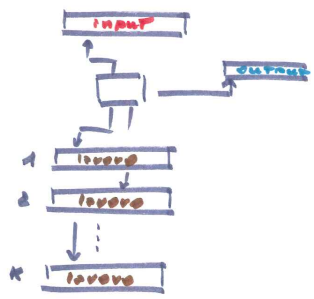 input
output
1 lavoro
2 lavoro
K lavoro